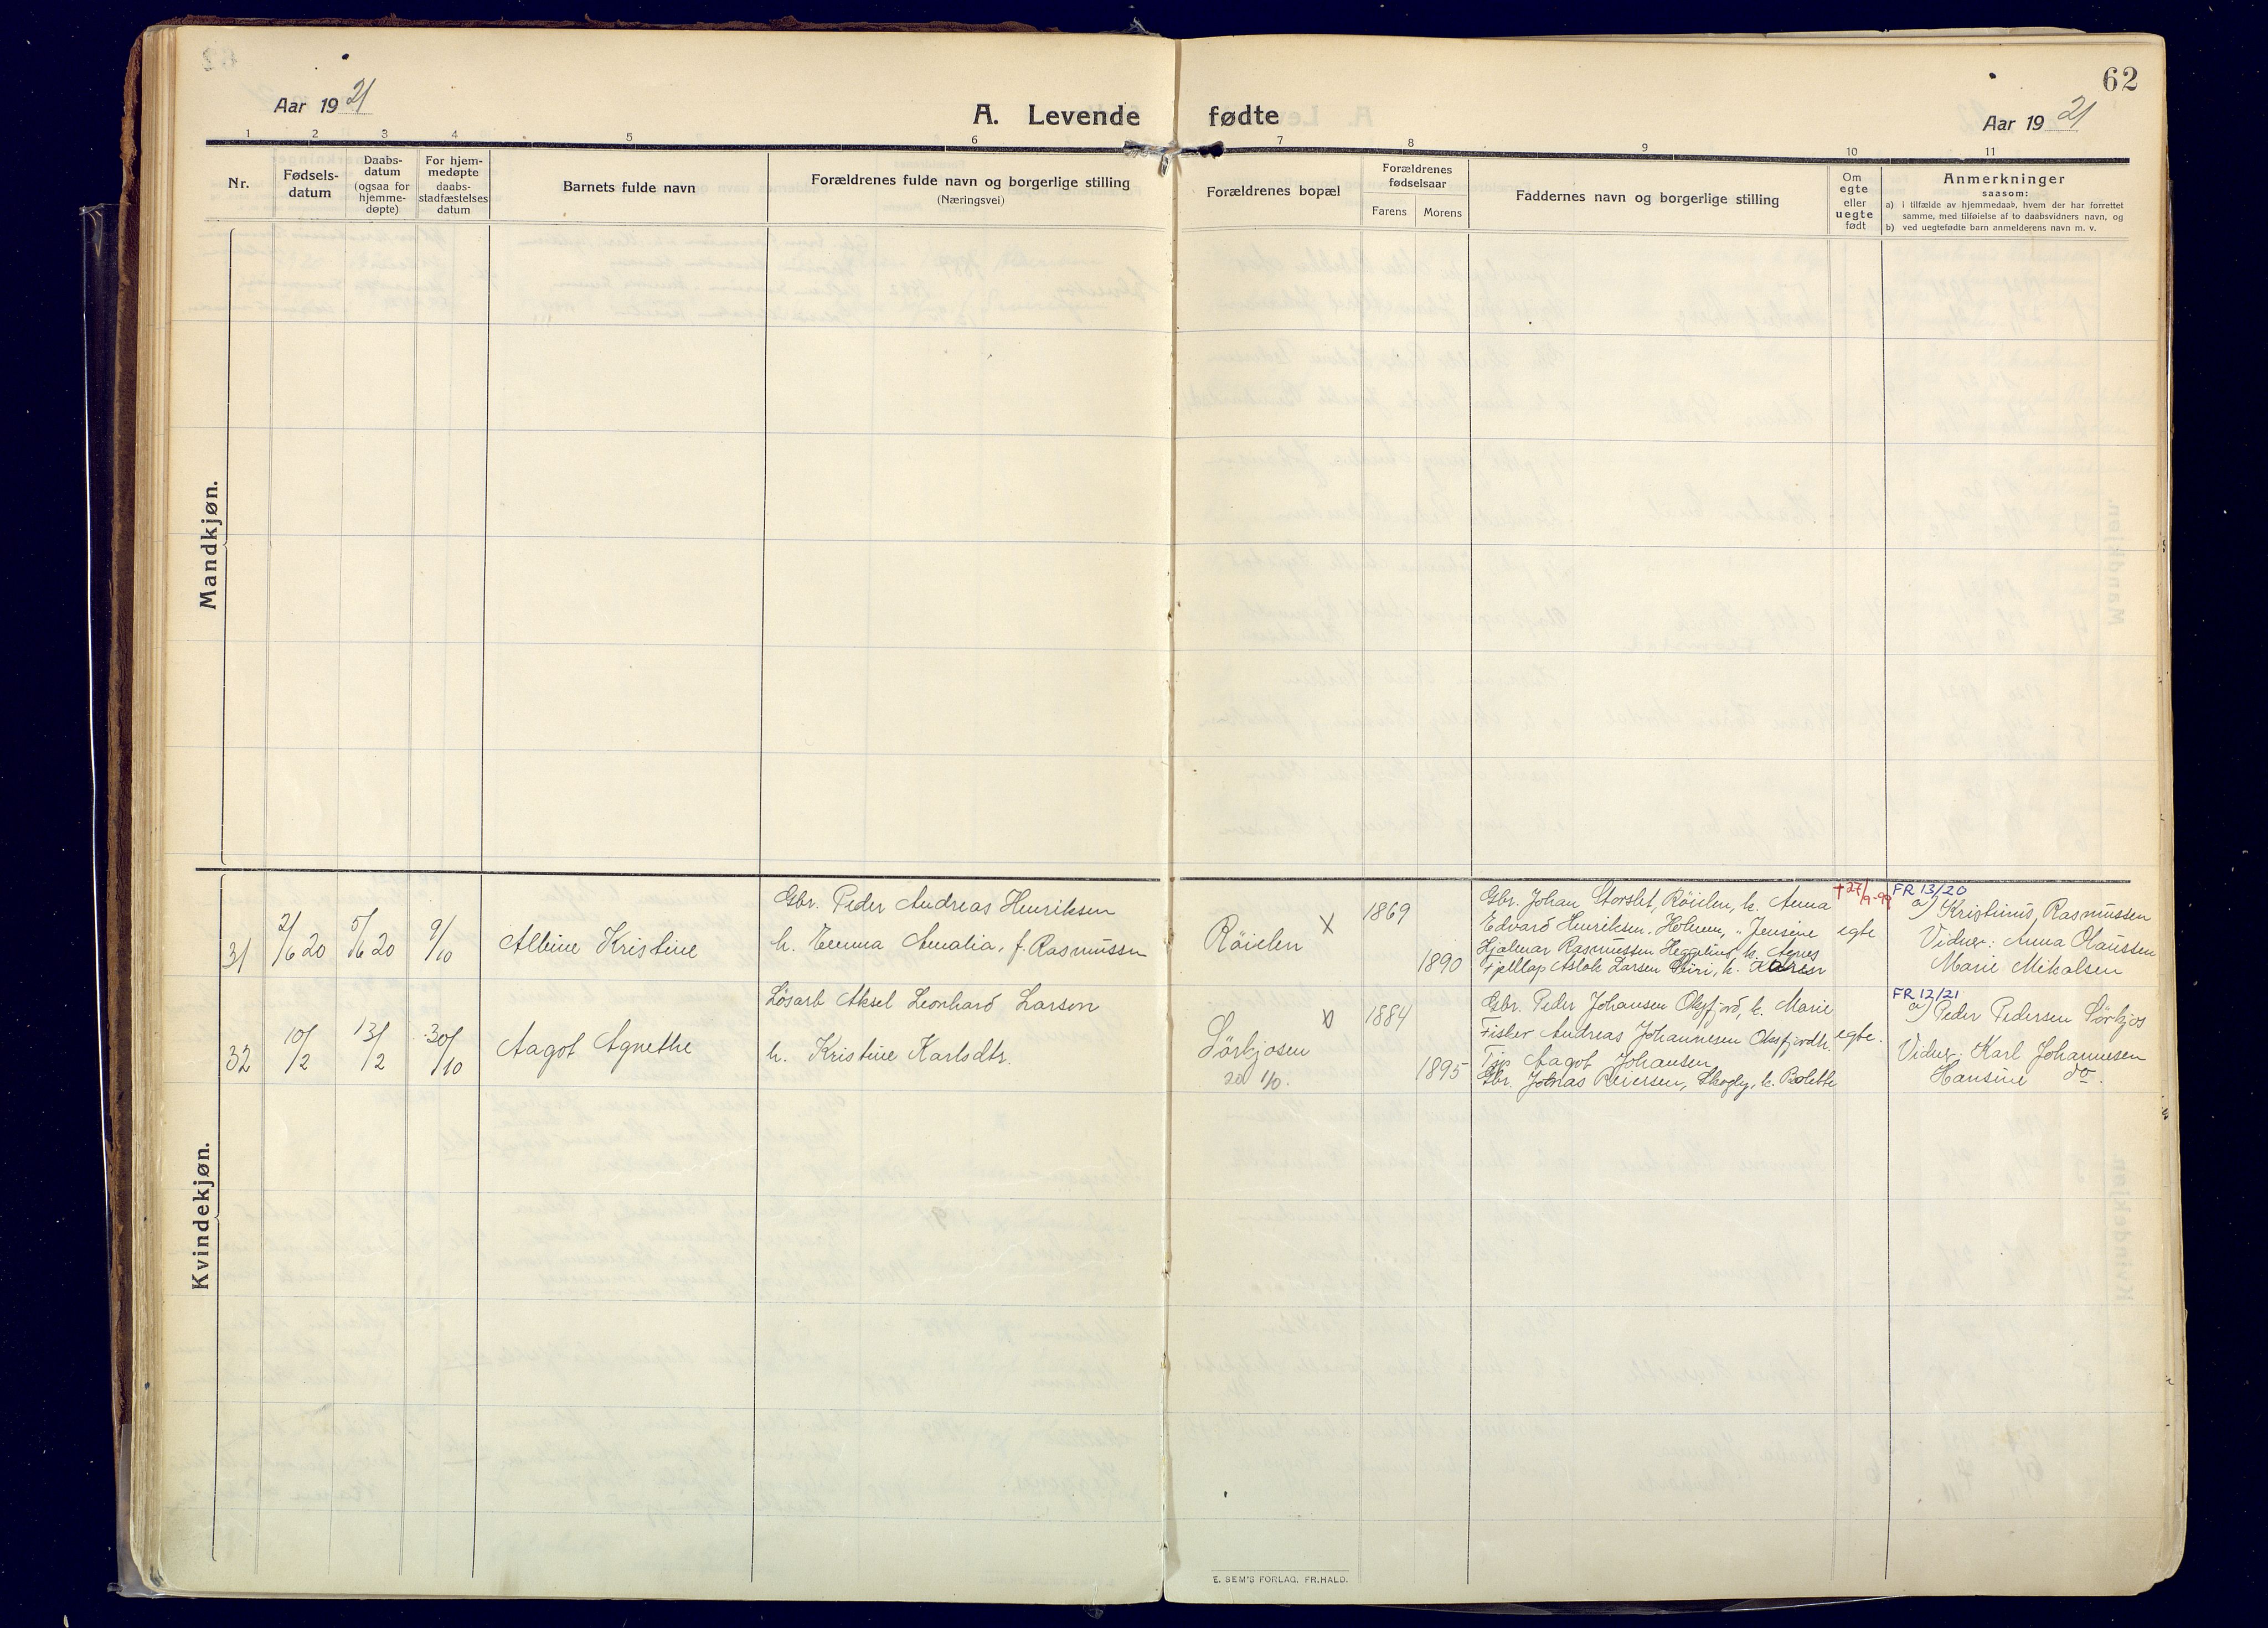 62
Aar 1921
A. Levende fødte
Aar 1921
1 2 3 4 5 6 7 8 9 10 11
Nr.
Fødsels-
datum
Daabs-
datum
(ogsaa for
hjemme-
døpte)
For hjem-
medøpte
daabs-
stadfæstelses
datum
Barnets fulde navn
Forældrenes fulde navn og borgerlige stilling
(Næringsvei)
Forældrenes bopæl
Forældrenes
fødselsaar
Farens Morens
Faddernes navn og borgerlige stilling
Om
egte
eller
uegte
født
Anmerkninger
saasom:
a) i tilfælde av hjemmedaab, hvem der har forrettet
samme, med tilføielse af to daabsvidners navn, og
b) ved uegtefødte barn anmelderens navn m. v.
Mandkjøn.
Kvindekjøn.
31
2/6 20
5/6 20
9/10
Albine Kristine
Gbr. Peder Andreas Henriksen
h. Emma Amalia, f. Rasmussen
Røielen x
1869
1890
Gbr. Johan Storslet, Røielen, h. Anna
Edvard Henriksen, Holmen, " Jensine
Hjalmar Rasmussen Heggelund, h. Agnes
Fjellap Aslak Larsen Siiri, h. Karen
†27/9-99
egte
FR 13/20
a) Kristinus Rasmussen
Vidner: Anna Olaussen
Marie Mikalsen
32
10/2
13/2
30/10
Aagot Agnethe
Løsarb Aksel Leonhard Larsen
h. Kristine Karlsdtr.
Sørkjosen x
20 1/0.
1884
1895
Gbr. Peder Johansen Oksfjord, h. Marie
Fisker Andreas Johannesen Oksfjordh.
Tjp Aagot Johansen
Gbr. Johas Reiersen, Skogly, h. Bolette
egte.
FR 12/21
a) Peder Pedersen Sørkjos
Vidner: Karl Johannesen
Hansine do.
E. SEM'S FORLAG, FR.HALD.